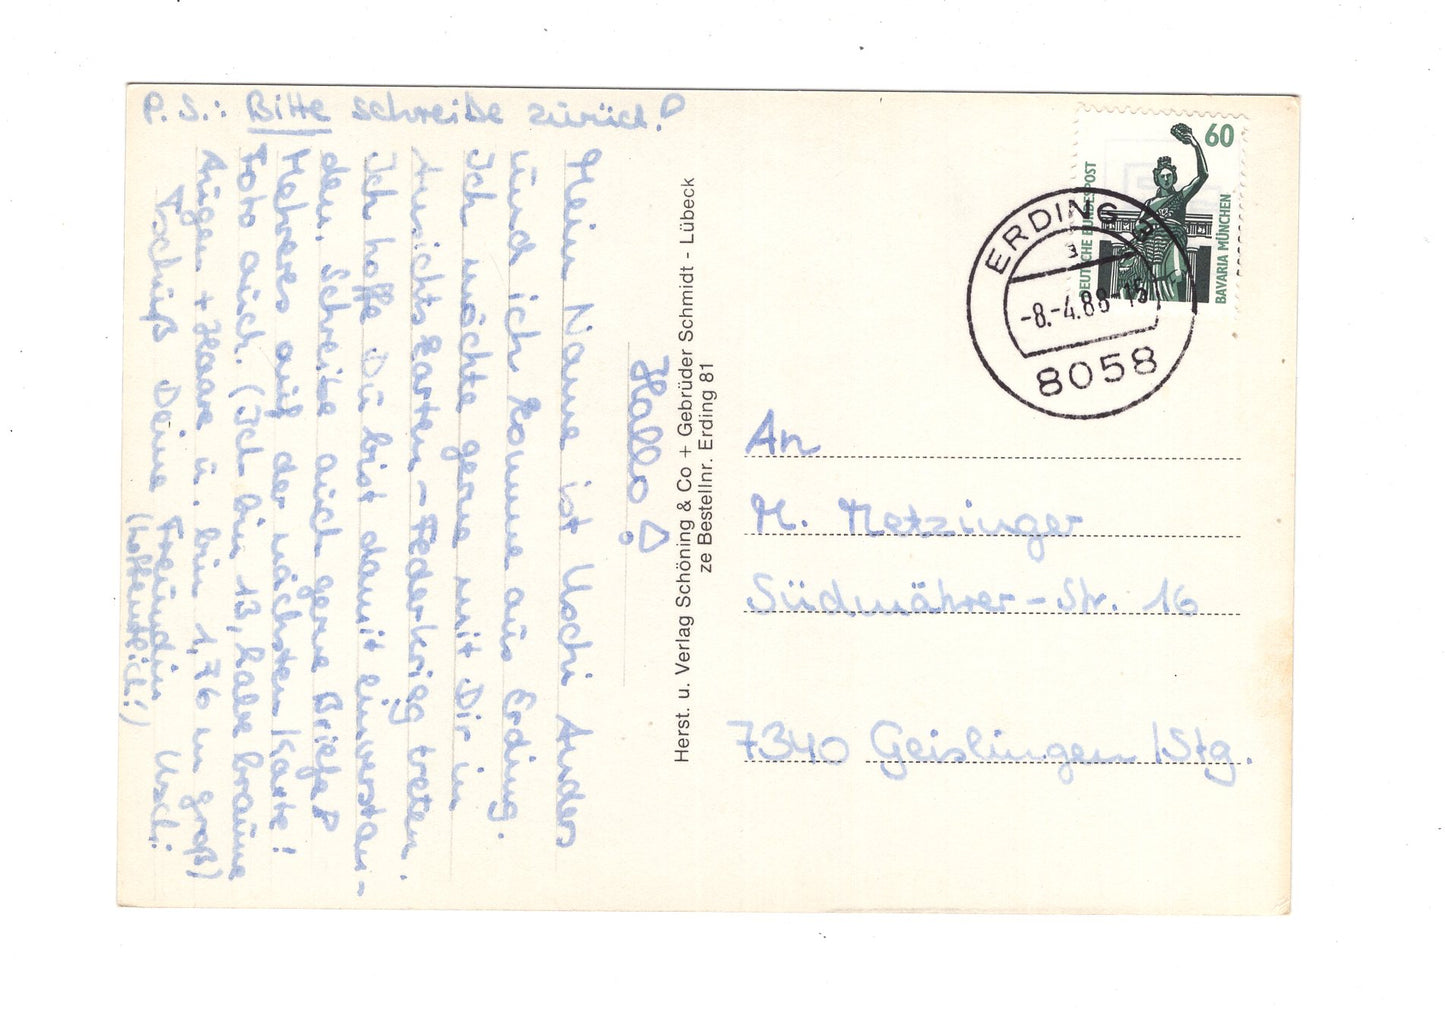 P.S.: Bitte schreibe zurück!
Hallo!
Mein Name ist Uschi Anders
und ich komme aus Erding.
Ich möchte gerne mit Dir in
Ansichtskarten-Federkrieg treten.
Ich hoffe Du bist damit einverstan-
den. Schreibe auch gerne Briefe!
Mehreres auf der nächsten Karte!
Foto auch. (Ich bin 13, habe braune
Augen + Haare u. bin 1,76 m groß)
Tschüß Deine Freundin Uschi
(hoffentlich!)
Herst. u. Verlag Schöning & Co + Gebrüder Schmidt - Lübeck
ze Bestellnr. Erding 81
60
DEUTSCHE BUNDESPOST
BAVARIA MÜNCHEN
ERDING
a
-8.-4.88-15
8058
An
M. Metzinger
Südmährer-Str. 16
7340 Geislingen/Stg.